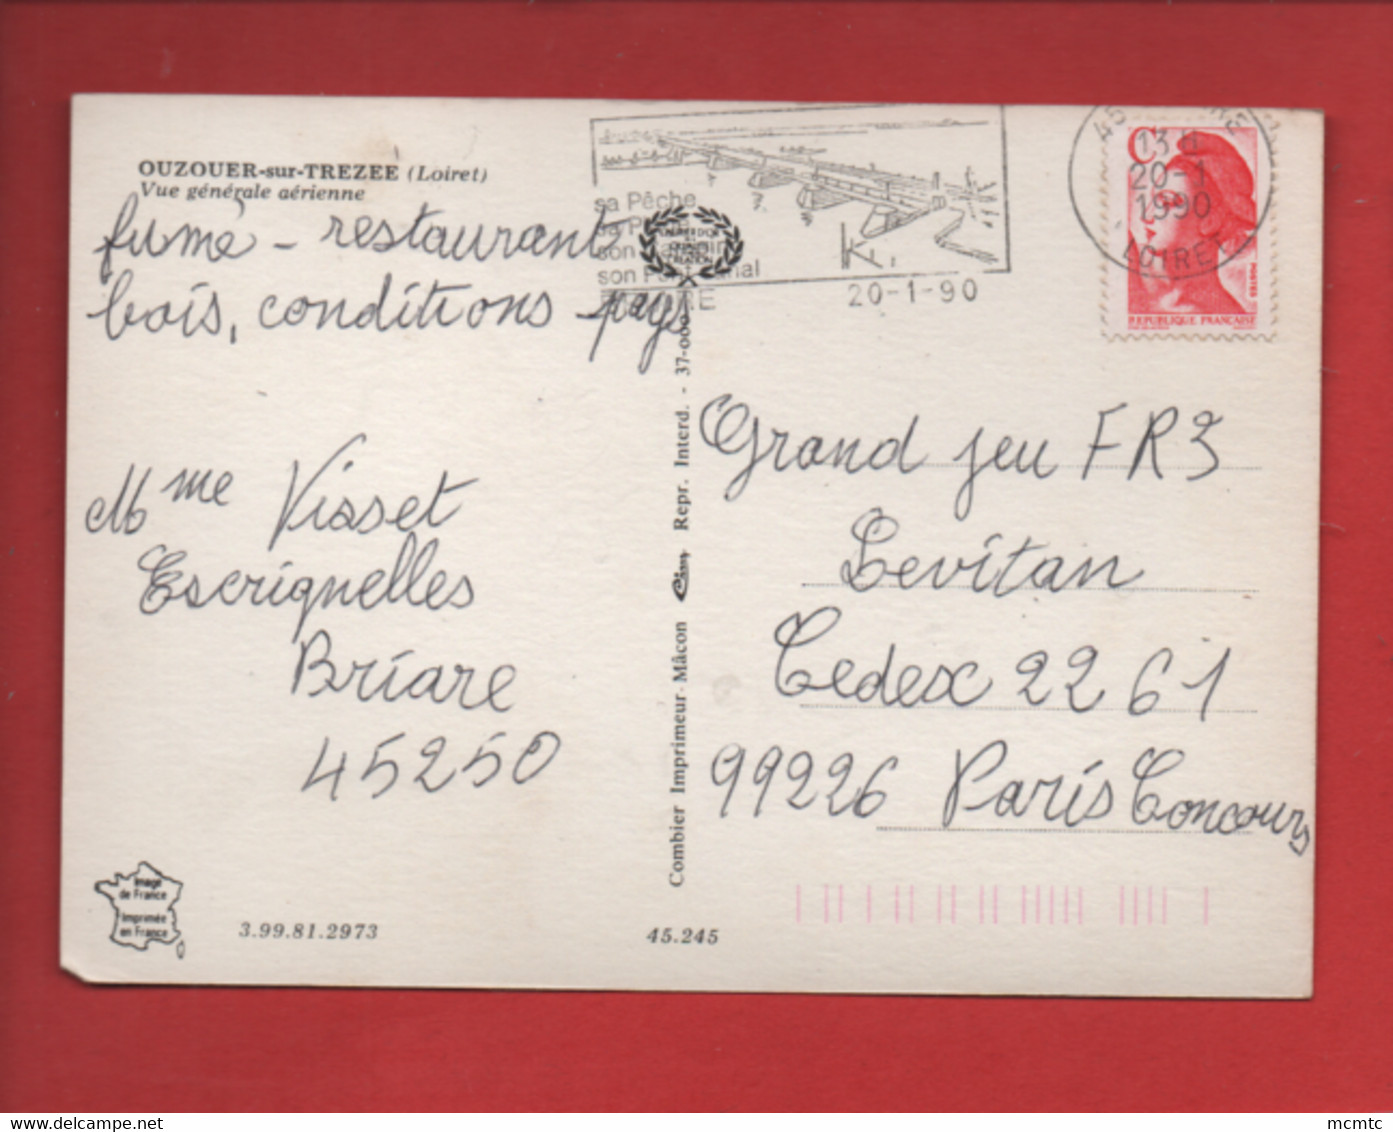 OUZOUER-sur-TREZEE (Loiret)
Vue générale aérienne
fumé - restaurant
bois, conditions pays
Mme Visset
Escrignelles
Briare
45250
Image
de France
Imprimée
en France
3.99.81.2973
45.245
Combier Imprimeur-Mâcon Cim Repr. Interd. - 37-00
sa Pêche
son
son Pont Canal
20-1-90
45
13 H
20-1
1990
LOIRET
C
POSTES
REPUBLIQUE FRANCAISE
Grand jeu FR3
Levitan
Cedex 2261
99226 Paris Concours
mcmtc